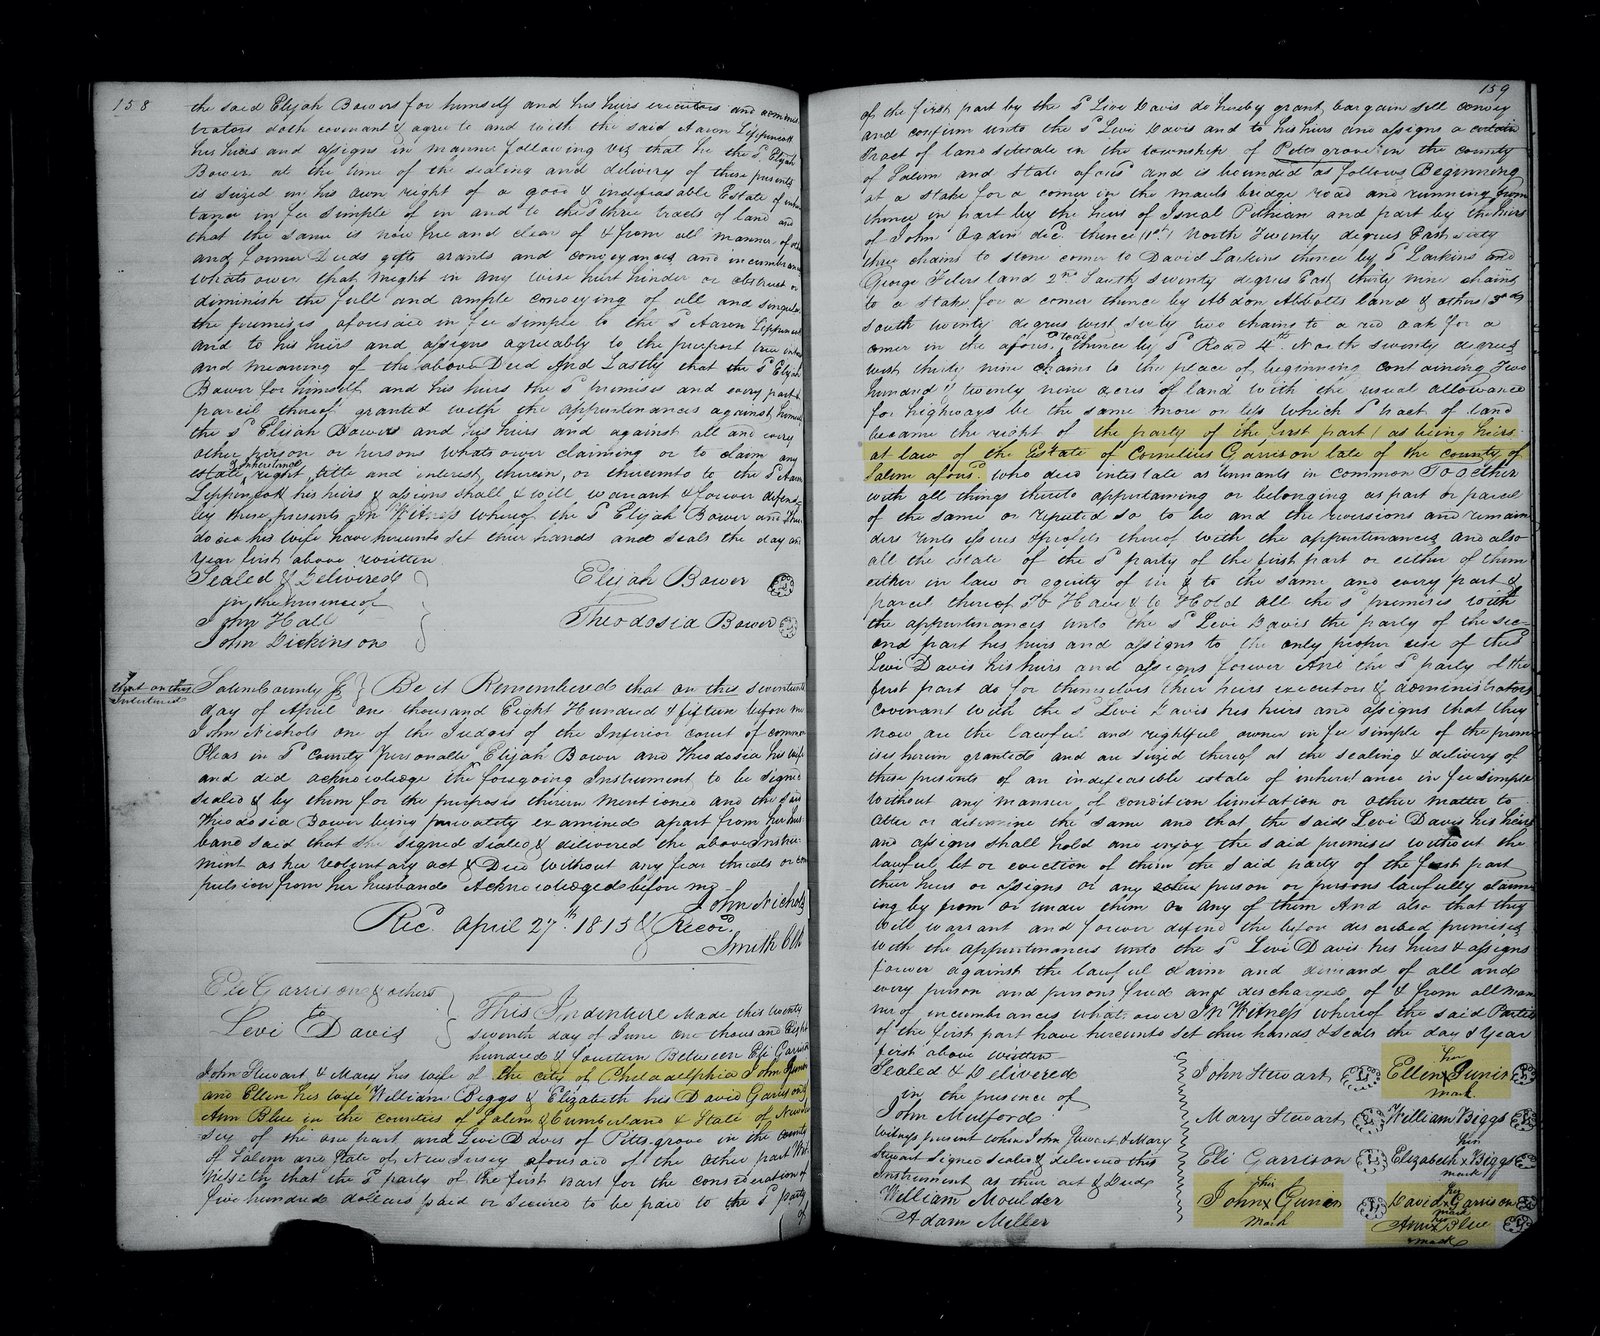 158
the said Elijah Bowers for himself and his heirs executors and adminis
trators doth covenant & agree to and with the said Aaron Lippincott
his heirs and assigns in manner following viz that he the sd. Elijah
Bower at the time of the sealing and delivery of these presents
is seized in his own right of a good & indefeasible Estate of inheri
tance in fee simple of in and to the sd three tracts of land and
that the same is now free and clear of & from all manner of
and former Deeds gifts grants and conveyances and incumbrances
whatsoever that might in any wise hurt hinder or obstruct or
diminish the full and ample conveying of all and singular
the premises aforesaid in fee simple to the sd Aaron Lippincott
and to his heirs and assigns agreeably to the purport true intent
and meaning of the above Deed And Lastly that the sd Elijah
Bower for himself and his heirs the sd premises and every part &
parcil thereof granted with the appurtenances against himself
the sd Elijah Bowers and his heirs and against all and every
other person or persons whatsoever claiming or to claim any
estate of inheritance right title and interest therein, or thereunto to the sd Aaron
Lippincott his heirs & assigns shall & will warrant & forever defend
by these presents In Witness whereof the sd Elijah Bower and Theo
dosia his wife have hereunto set their hands and seals the day and
year first above written
Sealed & Delivered
in the presence of
John Hall
John Dickinson
Elijah Bower
Theodosia Bower
that on this
Interlined
Salem County Js } Be it Remembered that on this seventeenth
day of April one thousand Eight Hundred & fifteen before me
John Nichols one of the Judges of the Inferior court of common
Pleas in sd County personally Elijah Bower and Theodosia his wife
and did acknowledge the foregoing Instrument to be signed
sealed & by them for the purposes therein mentioned and the said
Theodosia Bower being privately examined apart from her hus
band said that she signed sealed & delivered the above Instru-
ment as her voluntary act & Deed without any fear threats or com
pulsion from her husband Acknowledged before me
John Nichols
Recd. April 27th 1815 & Recod.
Smith Clk
Eli Garrison & others
to
Levi Davis
This Indenture Made this twenty
seventh day of June one thousand Eight
hundred & fourteen Between Eli Garrison
John Stewart & Mary his wife of the city of Philadelphia John Gunin
and Ellen his wife William Biggs & Elizabeth his David Garrison
Ann Blue in the counties of Salem & Cumberland & State of New Jer
sey of the one part and Levi Davis of Pitts-grove in the county
of Salem and State of New Jersey aforesaid of the other part Wit
nesseth that the sd party of the first part for the consideration of
five hundred dollars paid or secured to be paid to the sd party
of
159
of the first part by the sd Levi Davis do hereby grant bargain sell convey
and confirm unto the sd Levi Davis and to his heirs and assigns a certain
Tract of land situate in the township of Pitts grove in the county
of Salem and State afores and is bounded as follows Beginning
at a stake for a corner in the mauls bridge road and running from
thence in part by the heirs of Isreal Pithian and part by the heirs
of John Ogdin decd. thence (1st) North Twenty degrees East sixty
three chains to stone corner to David Larkins thence by sd Larkins and
George Feters land 2nd South seventy degrees East thirty nine chains
to a stake for a corner thence by Abdon Abbotts land & others 3rdly
south twenty degrees west sixty two chains to a red oak for a
corner in the afors'd road thence by sd Road 4th North seventy degrees
west thirty nine chains to the place of beginning containing Two
hundred & twenty nine acres of land with the usual allowance
for highways be the same more or less which sd tract of land
became the right of the party of the first part (as being heirs
at law of the Estate of Cornelius Garrison late of the county of
Salem aforsd. who died intestate as tennants in common Together
with all things thereto appertaining or belonging as part or parcel
of the same or reputed so to be and the reversions and remain
ders rents issues & profits thereof with the appurtenances and also
all the estate of the sd party of the first part or either of them
either in law or equity of in & to the same, and every part &
parcel thereof To Have & to Hold all the sd premises with
the appurtenances unto the sd Levi Davis the party of the sec-
ond part his heirs and assigns to the only proper use of the sd
Levi Davis his heirs and assigns forever And the sd party of the
first part do for themselves their heirs executors & administrators
covenant with the sd Levi Davis his heirs and assigns that they
now are the lawful and rightful owner in fee simple of the prem
ises herein granted and are seized thereof at the sealing & delivery of
these presents of an indefeasible estate of inheritance in fee simple
without any manner of condition limitation or other matter to
alter or determine the same and that the said Levi Davis his heirs
and assigns shall hold and enjoy the said premises without the
lawful let or eviction of them the said party of the first part
their heirs or assigns or any other person or persons lawfully claim
ing by from or under them or any of them And also that they
will warrant and forever defend the before described premises
with the appurtenances unto the sd Levi Davis his heirs & assigns
forever against the lawful claim and demand of all and
every person and persons freed and discharged of & from all man
ner of incumbrances what-soever In Witness whereof the said Parties
of the first part have hereunto set their hands & seals the day & year
first above written
Sealed & Delivered
in the presence of
John Mulford
Witness present when John Stewart & Mary
Stewart signed sealed & delivered this
Instrument as their act & Deed
William Moulder
Adam Miller
John Stewart
Mary Stewart
Eli Garrison
his
John x Gunin
mark
her
Ellen x Gunin
mark
William Biggs
her
Elizabeth x Biggs
mark
his
David x Garrison
mark
her
Ann x Blue
mark